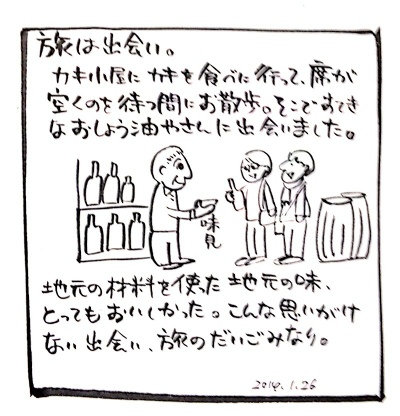 旅は出会い。
カキ小屋にカキを食べに行って、席が
空くのを待つ間にお散歩。そこですてき
なおしょう油やさんに出会いました。
味見
地元の材料を使った地元の味、
とってもおいしかった。こんな思いがけ
ない出会い、旅のだいごみなり。
2014.1.26